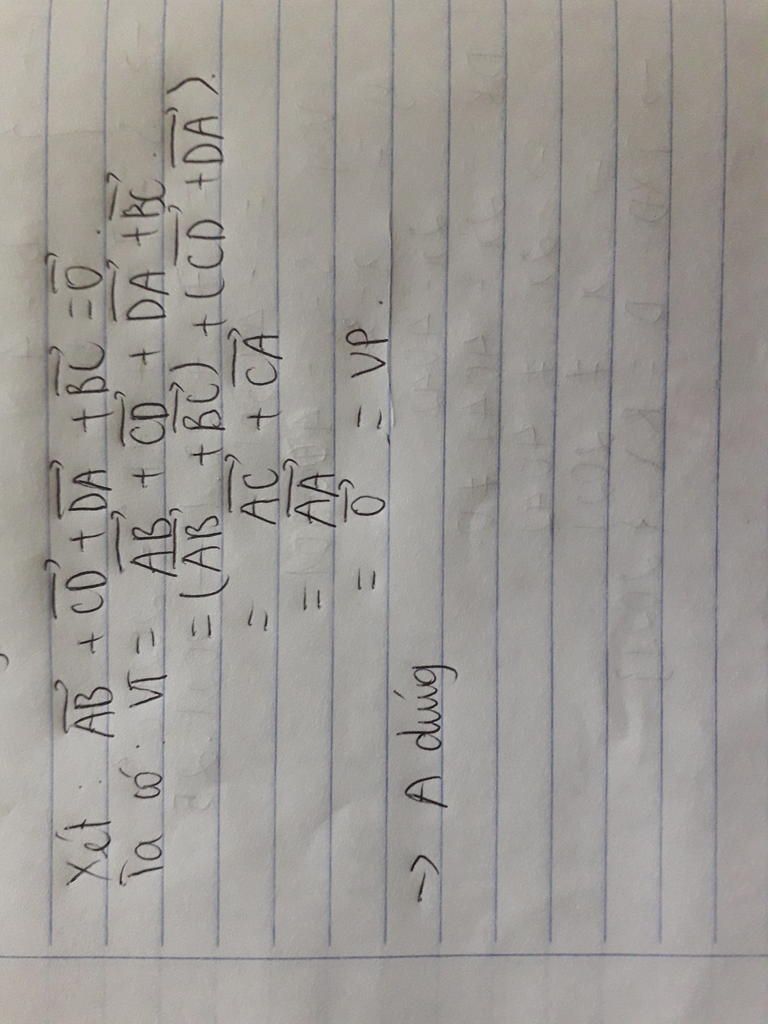 Xét : \overrightarrow{AB} + \overrightarrow{CD} + \overrightarrow{DA} + \overrightarrow{BC} = \overrightarrow{0} .
Ta có : VT = \overrightarrow{AB} + \overrightarrow{CD} + \overrightarrow{DA} + \overrightarrow{BC} .
= (\overrightarrow{AB} + \overrightarrow{BC}) + (\overrightarrow{CD} + \overrightarrow{DA}).
= \overrightarrow{AC} + \overrightarrow{CA}
= \overrightarrow{AA}
= \overrightarrow{0} = VP .
-> A đúng